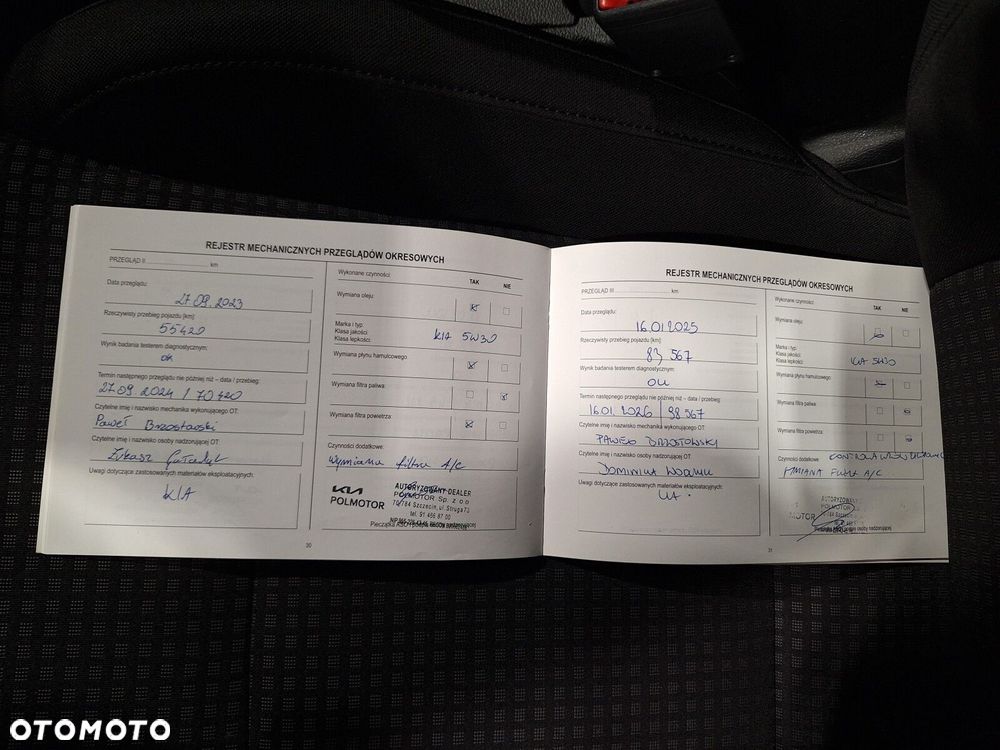 REJESTR MECHANICZNYCH PRZEGLĄDÓW OKRESOWYCH
PRZEGLĄD II km
Data przeglądu:
27.09.2023
Rzeczywisty przebieg pojazdu [km]:
55420
Wynik badania testerem diagnostycznym:
ok
Termin następnego przeglądu nie później niż – data / przebieg:
27.09.2024 / 70420
Czytelne imię i nazwisko mechanika wykonującego OT:
Paweł Brzostowski
Czytelne imię i nazwisko osoby nadzorującej OT:
Łukasz
Uwagi dotyczące zastosowanych materiałów eksploatacyjnych:
KIA
Wykonane czynności:
TAK NIE
Wymiana oleju:
Marka i typ:
Klasa jakości
Klasa lepkości
KIA 5W30
Wymiana płynu hamulcowego
Wymiana filtra paliwa:
Wymiana filtra powietrza:
Czynności dodatkowe:
Wymiana filtra A/C
KIA
POLMOTOR
AUTORYZOWANY DEALER
POLMOTOR Sp. z o.o.
70-784 Szczecin, ul. Struga 73
tel. 91 456 87 00
30
REJESTR MECHANICZNYCH PRZEGLĄDÓW OKRESOWYCH
PRZEGLĄD III km
Data przeglądu:
16.01.2025
Rzeczywisty przebieg pojazdu [km]:
83 567
Wynik badania testerem diagnostycznym:
Termin następnego przeglądu nie później niż – data / przebieg:
16.01.2026 | 98567
Czytelne imię i nazwisko mechanika wykonującego OT:
Czytelne imię i nazwisko osoby nadzorującej OT:
DOMINIKA
Uwagi dotyczące zastosowanych materiałów eksploatacyjnych:
Wykonane czynności:
TAK NIE
Wymiana oleju:
Marka i typ:
Klasa jakości
Klasa lepkości
KIA 5W30
Wymiana płynu hamulcowego:
Wymiana filtra paliwa:
Wymiana filtra powietrza:
Czynności dodatkowe:
A/C
AUTORYZOWANY
POLMOTOR
MOTOR
31
OTOMOTO